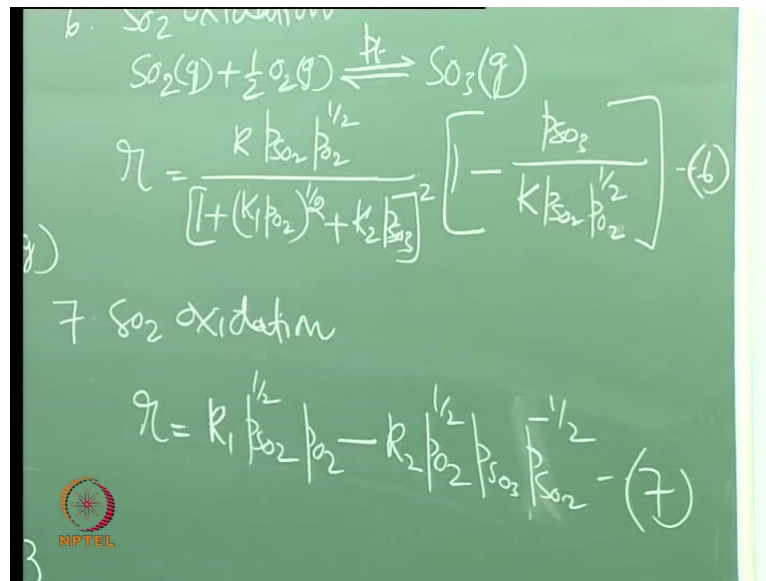 6. SO2 oxidation
SO2(g) + 1/2 O2(g) ⇌ SO3(g)
Pt
r = k pSO2 pO2^1/2 / [1 + (K1 pO2)^1/2 + K2 pSO3]^2 [1 - pSO3 / K pSO2 pO2^1/2] -(6)
g)
7. SO2 oxidation
r = k1 pSO2^1/2 pO2 - k2 pO2^1/2 pSO3 pSO2^-1/2 -(7)
NPTEL
3